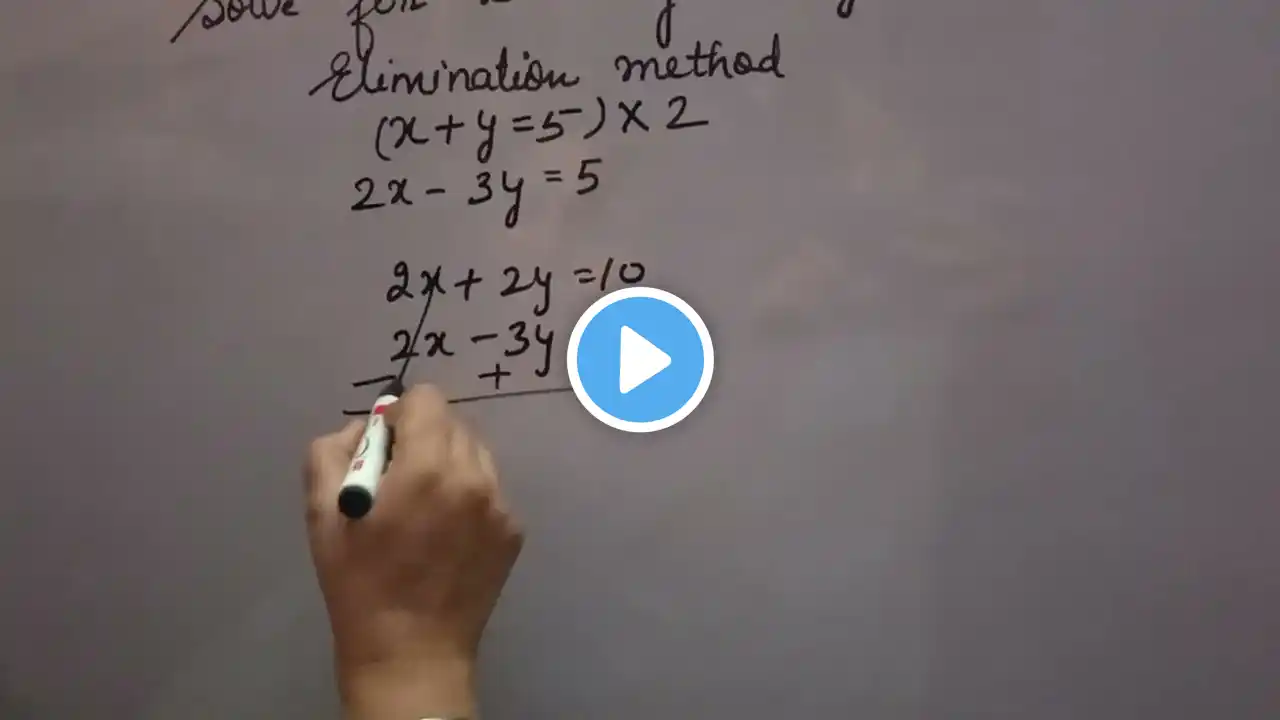 Solve for
Elimination method
(x + y = 5) × 2
2x - 3y = 5
2x + 2y = 10
2x - 3y
- +